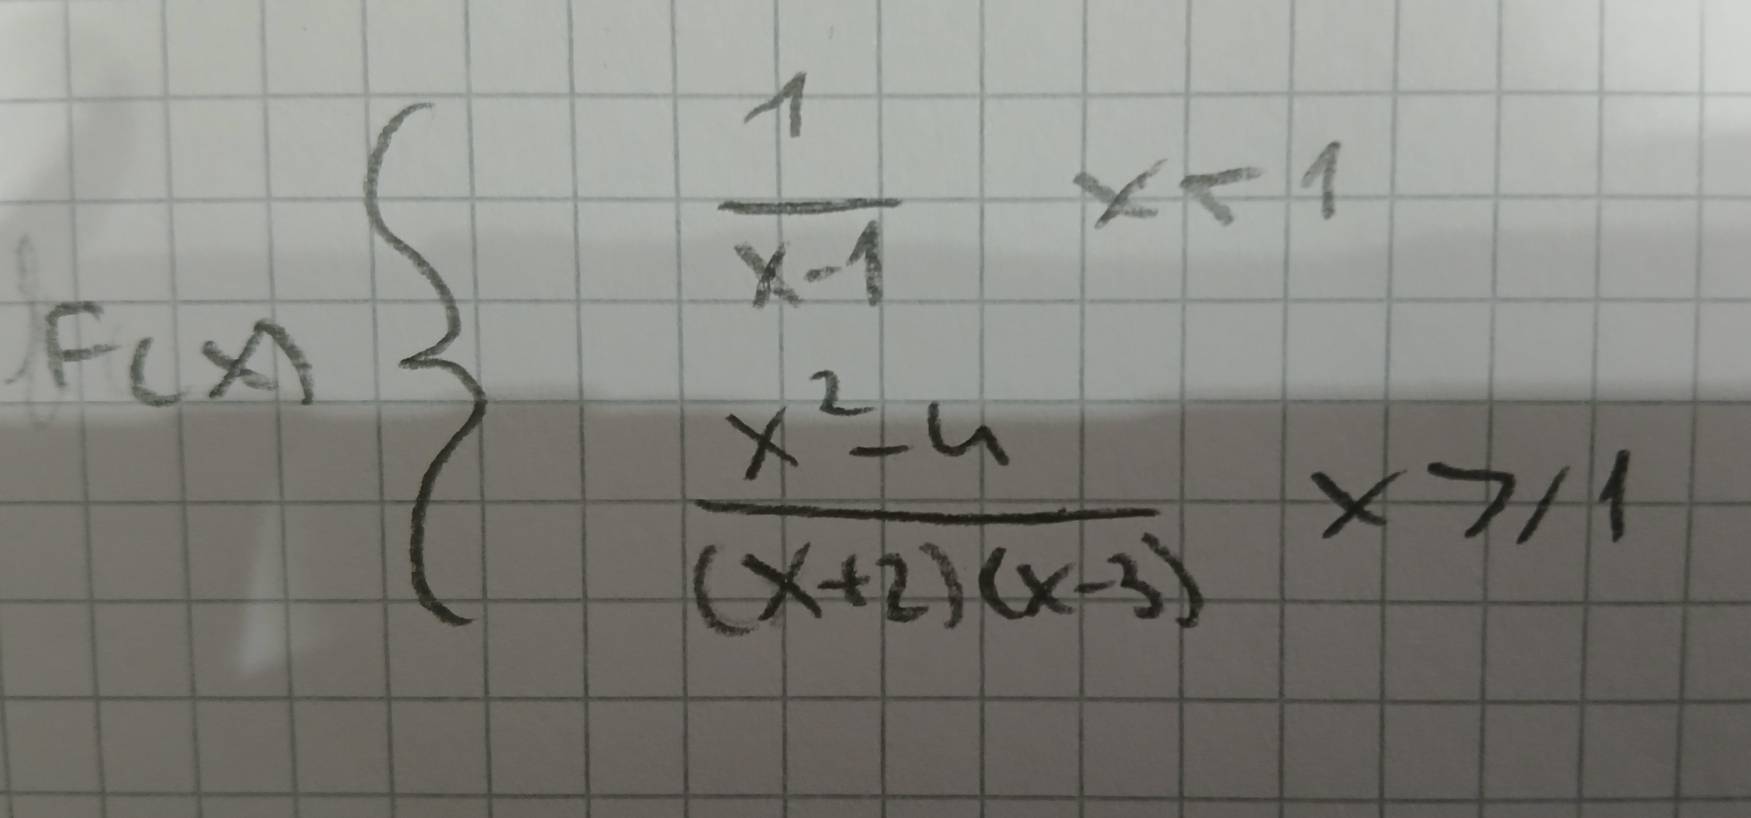 F(x) { 1/(x-1) x < 1
(x²-4)/((x+2)(x-3)) x ⩾ 1